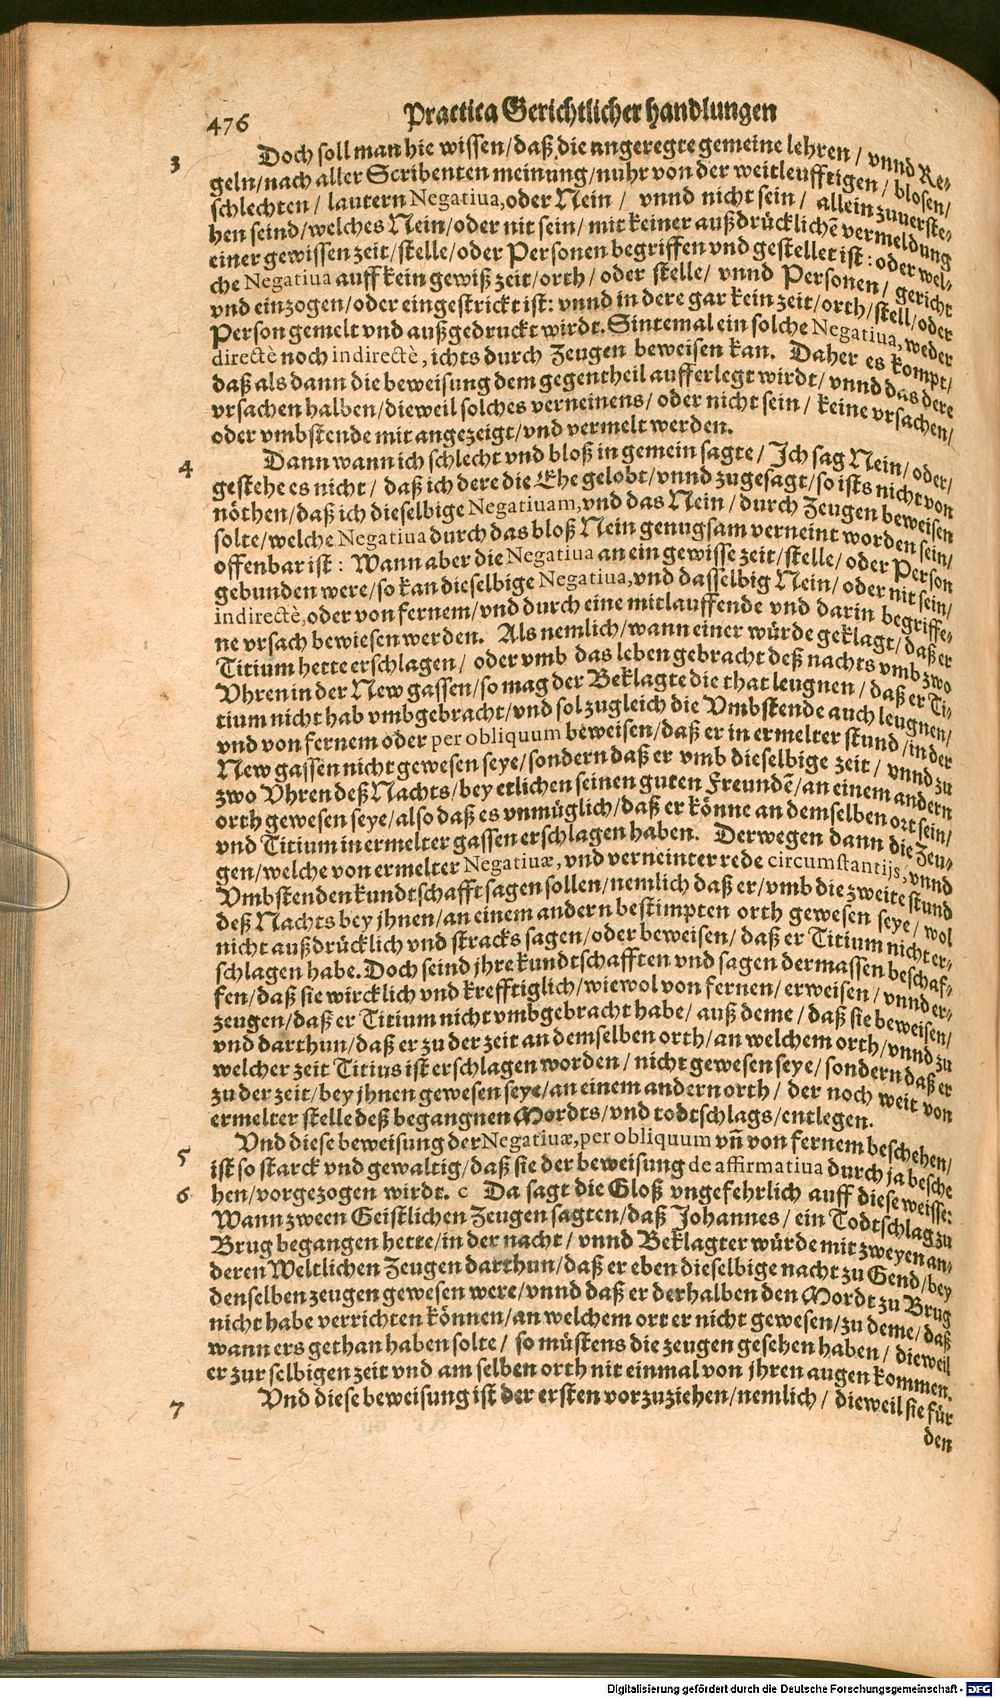 476 Practica Gerichtlicher handlungen
3 Doch soll man hie wissen/daß die angeregte gemeine lehren / vnnd Re-
geln/nach aller Scribenten meinung/nuhr von der weitleufftigen / blosen/
schlechten / lautern Negatiua, oder Nein / vnnd nicht sein / allein zuuerste-
hen seind/welches Nein/oder nit sein/ mit keiner außdrücklichẽ vermeldung
einer gewissen zeit/stelle/oder Personen begriffen vnd gestellet ist : oder wel-
che Negatiua auff kein gewiß zeit/orth / oder stelle/ vnnd Personen / gericht
vnd einzogen/oder eingestrickt ist: vnnd in dere gar kein zeit/orth/stell/oder
Person gemelt vnd außgedruckt wirdt. Sintemal ein solche Negatiua, weder
directè noch indirectè, ichts durch Zeugen beweisen kan. Daher es kompt/
daß als dann die beweisung dem gegentheil aufferlegt wirdt/ vnnd das dere
vrsachen halben/dieweil solches verneinens/ oder nicht sein/ keine vrsachen/
oder vmbstende mit angezeigt/vnd vermelt werden.
4 Dann wann ich schlecht vnd bloß in gemein sagte/ Ich sag Nein/oder/
gestehe es nicht/ daß ich dere die Ehe gelobt/vnnd zugesagt/so ists nicht von
nöthen/daß ich dieselbige Negatiuam, vnd das Nein/ durch Zeugen beweisen
solte/welche Negatiua durch das bloß Nein genugsam verneint worden sein/
offenbar ist : Wann aber die Negatiua an ein gewisse zeit/stelle/oder Person
gebunden were/so kan dieselbige Negatiua, vnd dasselbig Nein/ oder nit sein/
indirectè, oder von fernem/vnd durch eine mitlauffende vnd darin begriffe-
ne vrsach bewiesen werden. Als nemlich/wann einer würde geklagt/daß er
Titium hette erschlagen/ oder vmb das leben gebracht deß nachts vmb zwo
Vhren in der New gassen/so mag der Beklagte die that leugnen/ daß er Ti-
tium nicht hab vmbgebracht/vnd sol zugleich die Vmbstende auch leugnen/
vnd von fernem oder per obliquum beweisen/daß er in ermelter stund/in der
New gassen nicht gewesen seye/sondern daß er vmb dieselbige zeit/ vnnd zu
zwo Vhren deß Nachts/bey etlichen seinen guten Freundẽ/an einem andern
orth gewesen seye/also daß es vnmüglich/daß er könne an demselben ort sein/
vnd Titium in ermelter gassen erschlagen haben. Derwegen dann die Zeu-
gen/welche von ermelter Negatiuæ, vnd verneinter rede circumstantijs, vnnd
Vmbstenden kundtschafft sagen sollen/nemlich daß er/vmb die zweite stund
deß Nachts bey jhnen/an einem andern bestimpten orth gewesen seye/ wol
nicht außdrücklich vnd stracks sagen/oder beweisen/ daß er Titium nicht er-
schlagen habe. Doch seind jhre kundtschafften vnd sagen dermassen beschaf-
fen/daß sie wircklich vnd krefftiglich/wiewol von fernen/erweisen/ vnnd er-
zeugen/daß er Titium nicht vmbgebracht habe/ auß deme/ daß sie beweisen/
vnd darthun/daß er zu der zeit an demselben orth/an welchem orth/vnnd zu
welcher zeit Titius ist erschlagen worden/ nicht gewesen seye/ sondern daß er
zu der zeit/bey jhnen gewesen seye/an einem andern orth/ der noch weit von
ermelter stelle deß begangnen Mordts/vnd todtschlags/entlegen.
5 Vnd diese beweisung der Negatiuæ, per obliquum vñ von fernem beschehen/
ist so starck vnd gewaltig/daß sie der beweisung de affirmatiua durch ja besche
6 hen/vorgezogen wirdt. c Da sagt die Gloß vngefehrlich auff diese weisse:
Wann zween Geistlichen Zeugen sagten/daß Johannes/ ein Todtschlag zu
Brug begangen hette/in der nacht/ vnnd Beklagter würde mit zweyen an-
deren Weltlichen Zeugen darthun/daß er eben dieselbige nacht zu Gend/bey
denselben zeugen gewesen were/vnnd daß er derhalben den Mordt zu Brug
nicht habe verrichten können/an welchem ort er nicht gewesen/zu deme/daß
wann ers gethan haben solte/ so müstens die zeugen gesehen haben/ dieweil
er zur selbigen zeit vnd am selben orth nit einmal von jhren augen kommen.
7 Vnd diese beweisung ist der ersten vorzuziehen/nemlich/ dieweil sie für
den
Digitalisierung gefördert durch die Deutsche Forschungsgemeinschaft - DFG